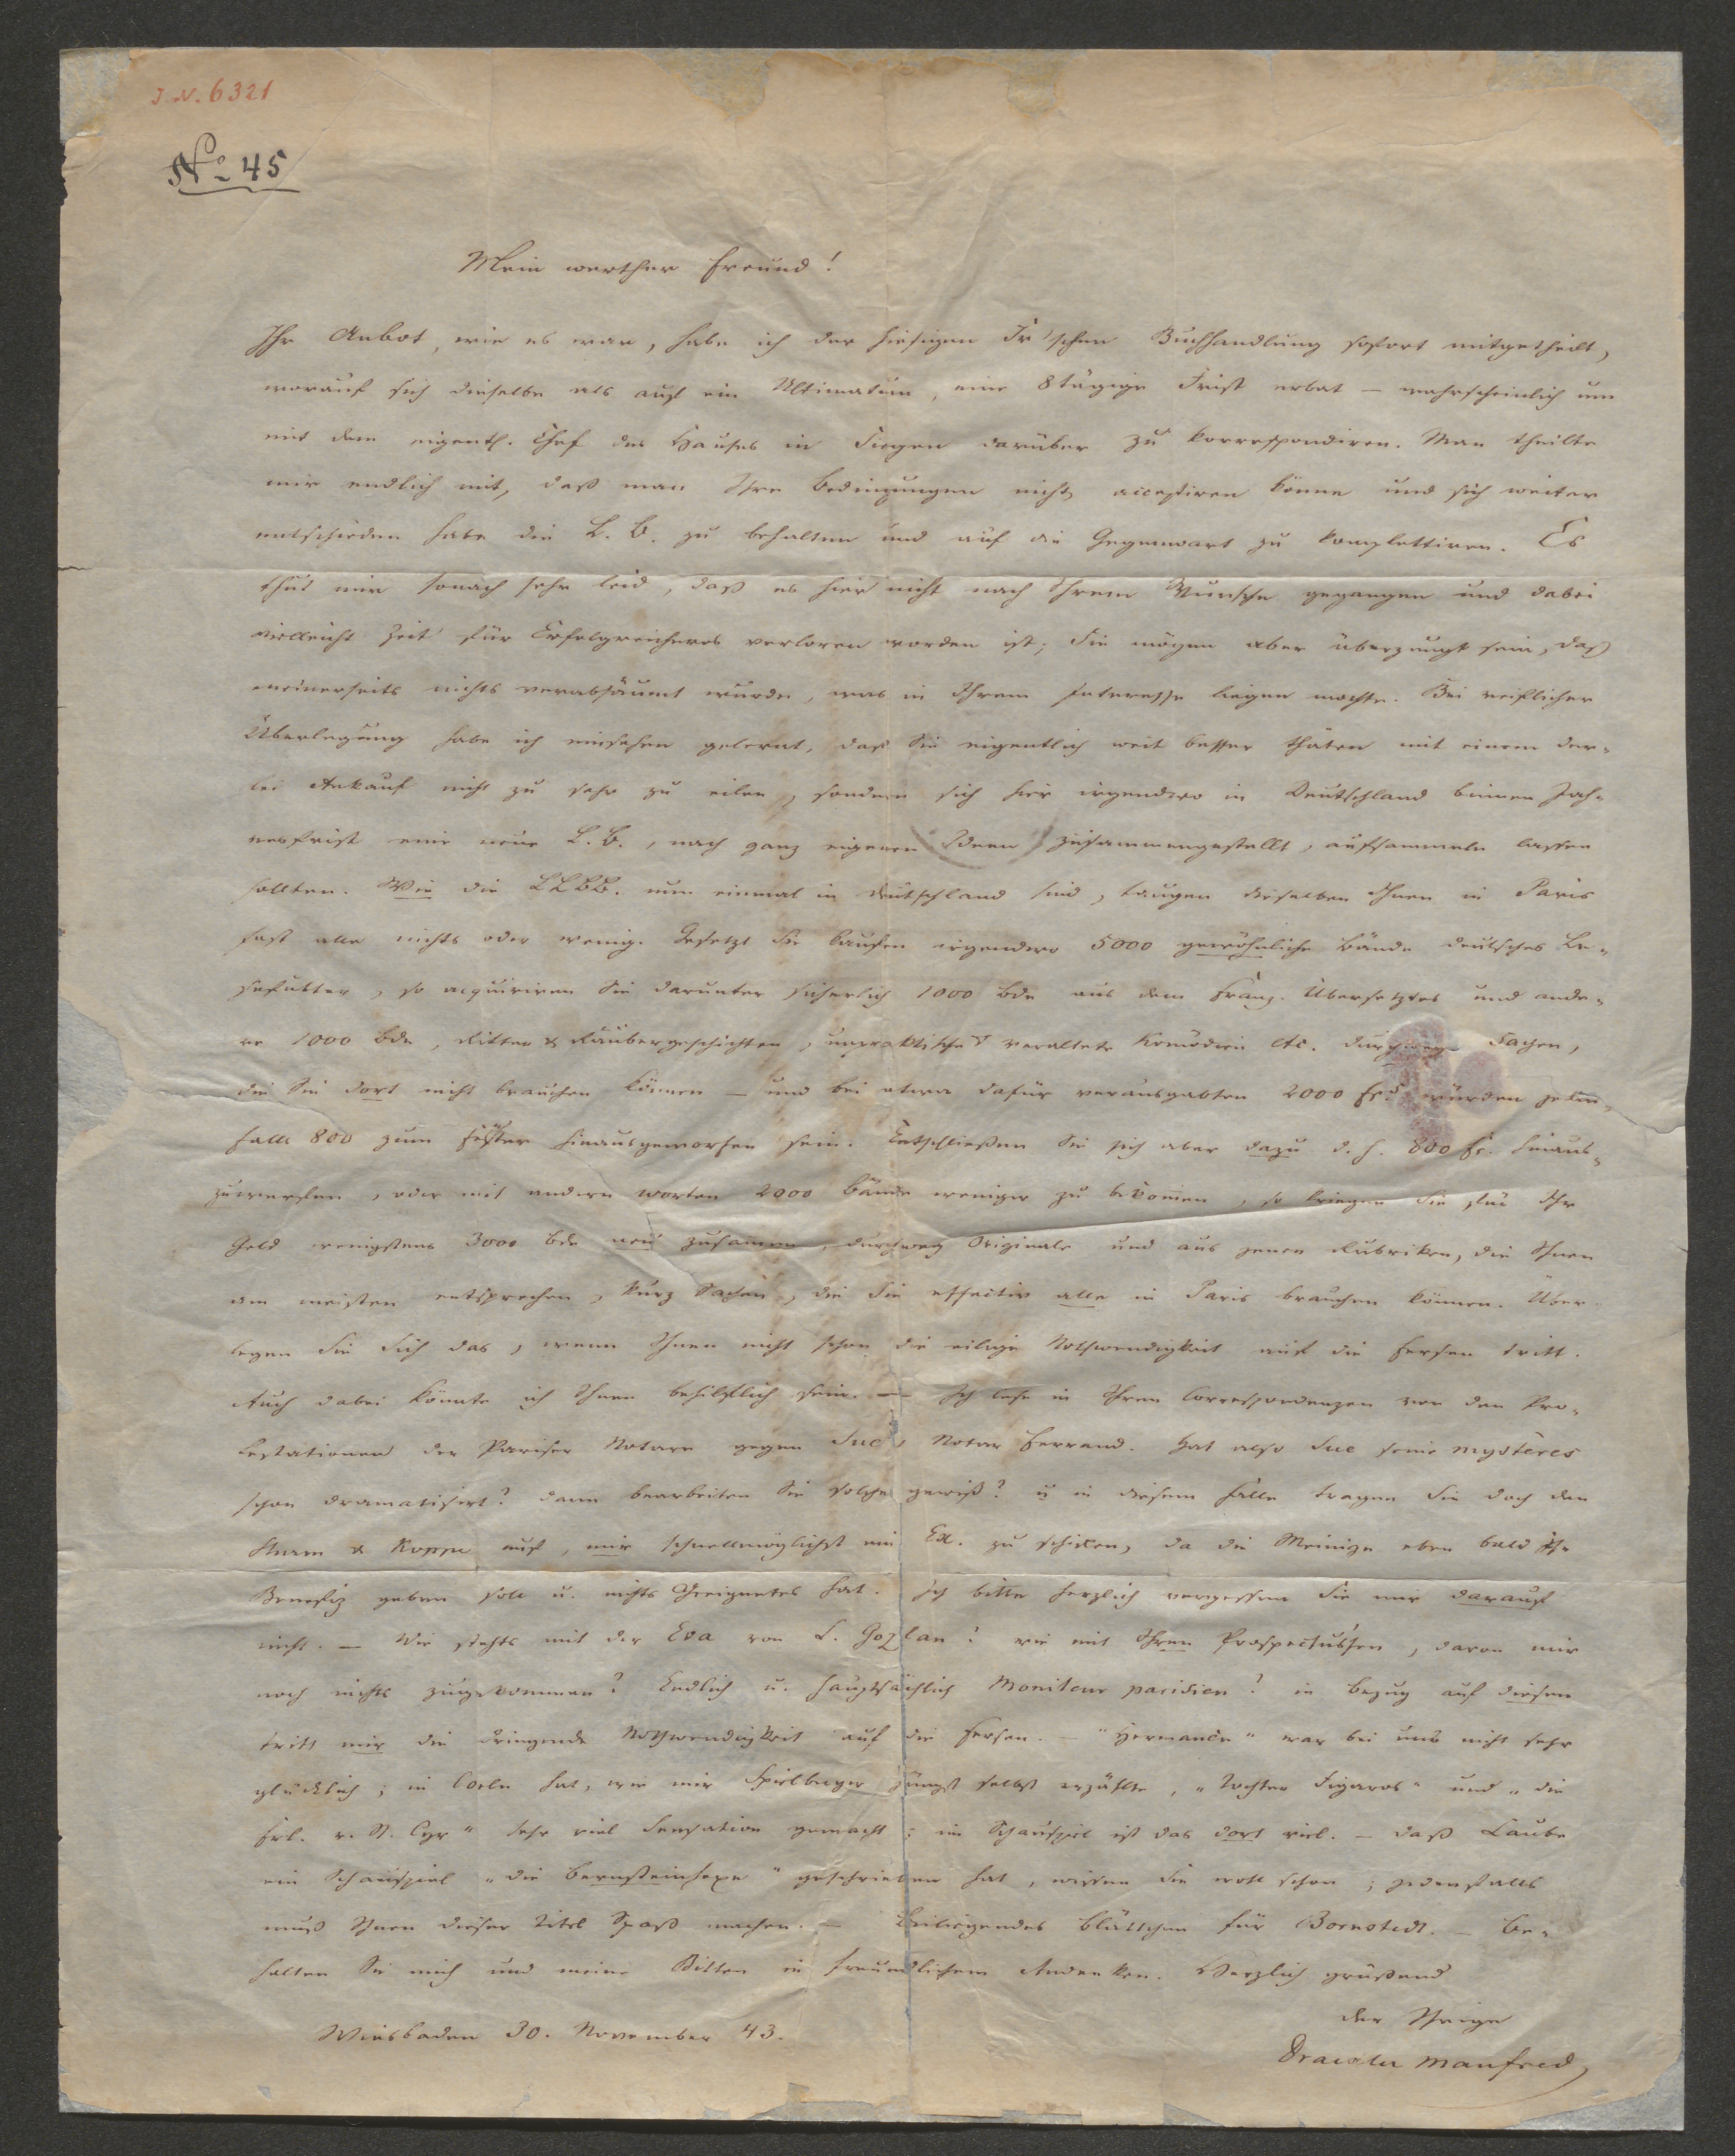 J. N. 6321
No 45
Mein werther Freund!
Ihr Anbot, wie es war, habe ich der hiesigen Fr'schen Buchhandlung sofort mitgetheilt,
worauf sich dieselbe als auf ein Ultimatum, eine 8tägige Frist erbat – wahrscheinlich um
mit dem eigentl. Chef des Hauses in Siegen darüber zu korrespondiren. Man theilte
mir endlich mit, daß man Ihre Bedingungen nicht acceptiren könne und sich weiter
entschieden habe die L. B. zu behalten und auf die Gegenwart zu komplettiren. Es
thut mir sonach sehr leid, daß es hier nicht nach Ihrem Wunsche gegangen und dabei
vielleicht Zeit für Erfolgreicheres verloren worden ist; Sie mögen aber überzeugt sein, daß
meinerseits nichts verabsäumt wurde, was in Ihrem Interesse liegen mochte. Bei reiflicher
Überlegung habe ich einsehen gelernt, daß Sie eigentlich weit besser thäten mit einem der-
lei Ankauf nicht zu sehr zu eilen, sondern sich hier irgendwo in Deutschland binnen Jah-
resfrist eine neue L. B., nach ganz eigenen Ideen zusammengestellt, aufsammeln lassen
sollten. Wie die LLBB. nun einmal in Deutschland sind, taugen dieselben Ihnen in Paris
fast alle nichts oder wenig. Gesetzt Sie kaufen irgendwo 5000 gewöhnliche Bände deutsches Le-
sefutter, so acquiriren Sie darunter sicherlich 1000 Bde aus dem Franz. Übersetztes und ande-
re 1000 Bde, Ritter & Räubergeschichten, unpraktische veraltete Komödien etc. durchweg Sachen,
die Sie dort nicht brauchen können – und bei etwa dafür verausgabten 2000 frs würden jeden-
falls 800 zum Fenster hinausgeworfen sein. Entschließen Sie sich aber dazu d. h. 800 fr. hinaus-
zuwerfen, oder mit andern Worten 2000 Bände weniger zu bekommen, so kriegen Sie für Ihr
Geld wenigstens 3000 Bde neu zusammen, durchweg Originale und aus jenen Rubriken, die Ihnen
am meisten entsprechen, kurz Sachen, die Sie effectiv alle in Paris brauchen können. Über-
legen Sie Sich das, wenn Ihnen nicht schon die eilige Nothwendigkeit auf die Fersen tritt.
Auch dabei könnte ich Ihnen behilflich sein. — Ich lese in Ihren Correspondenzen von den Pro-
testationen der Pariser Notare gegen Sue's Notar Ferrand. Hat also Sue seine mystères
schon dramatisirt? dann bearbeiten Sie solche gewiß? u in diesem Falle tragen Sie doch den
Sturm & Koppe auf, mir schnellmöglichst ein Ex. zu schicken, da die Meinige eben bald ihr
Benefiz geben soll u. nichts Geeignetes hat. Ich bitte herzlich vergessen Sie mir darauf
nicht. – Wie stehts mit der Eva von L. Gozlan? wie mit Ihren Prospectussen, davon mir
noch nichts zugekommen? Endlich u. hauptsächlich Moniteur parisien? in Bezug auf diesen
tritt mir die dringende Nothwendigkeit auf die Fersen. – "Hermance" war bei uns nicht sehr
glücklich; in Coeln hat, wie mir Spielberger jüngst selbst erzählte, „Tochter Figaros" und „die
Frl. v. St. Cyr" sehr viel Sensation gemacht; im Schauspiel ist das dort viel. – Daß Laube
ein Schauspiel „die Bernsteinhexe" geschrieben hat, wissen Sie wohl schon; jedenfalls
muß Ihnen dieser Titel Spaß machen. – Beiliegendes Blättchen für Bornstedt. – Be-
halten Sie mich und meine Bitten in freundlichem Andenken. Herzlich grüßend
der Ihrige
Wiesbaden 30. November 43.
Draexler Manfred